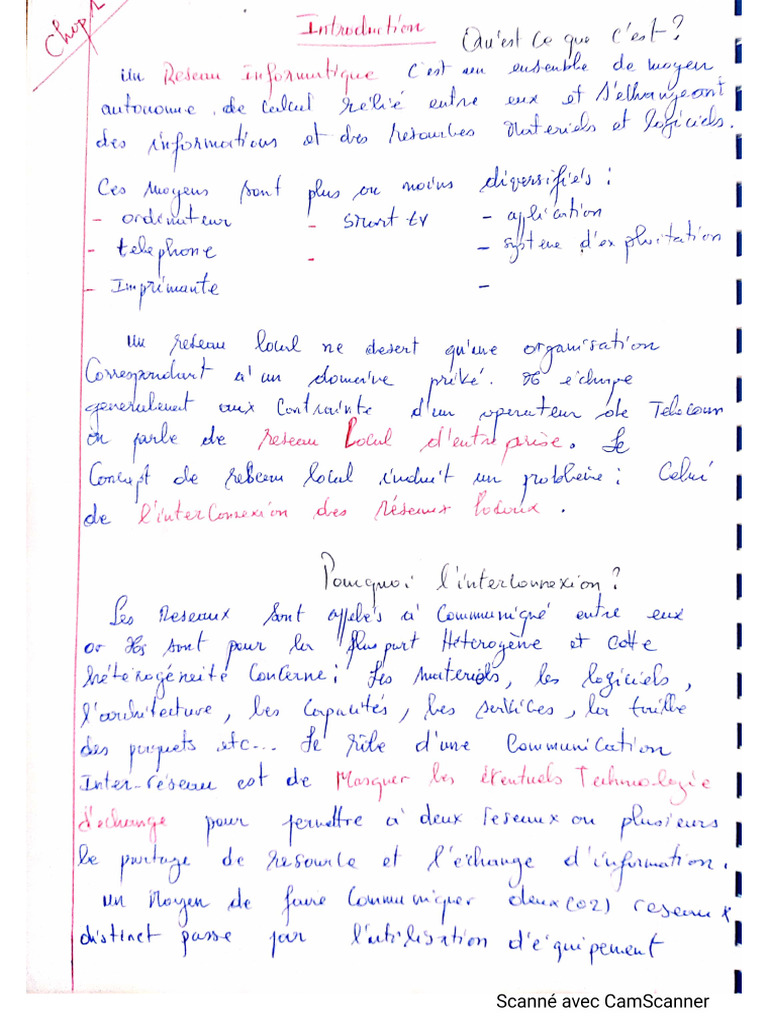 Chap 1
Introduction
Qu'est ce que c'est?
Un Reseau Informatique c'est un ensemble de moyen
autonome de calcul rélié entre eux et s'echangeant
des informations et des resources Materiels et logiciels.
Ces moyens sont plus ou moins diversifiés :
- ordinateur - smart tv - application
- telephone - - systeme d'exploitation
- Imprimante -
Un reseau local ne desert qu'une organisation
Correspondant à un domaine privé. Il echappe
generalement aux Contrainte d'un operateur de Telecom
on parle de reseau Local d'entreprise. Le
Concept de reseau local induit un problème : Celui
de l'interConnexion des réseaux locaux.
Pourquoi l'interconnexion?
Les Reseaux sont appelés à Communiqué entre eux
or Ils sont pour la plupart Hétérogène et cette
hétérogénéité Concerne : Les Materiels, les logiciels,
l'architecture, les Capacités, les services, la taille
des paquets etc... Le rôle d'une Communication
Inter-réseau est de Masquer les éventuels Technologie
d'echange pour permettre à deux reseaux ou plusieurs
le partage de resource et l'échange d'information.
un Moyen de faire Communiquer deux (02) reseaux
distinct passe par l'utilisation d'équipement
Scanné avec CamScanner